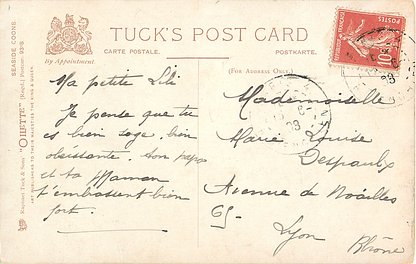 TUCK'S POST CARD
CARTE POSTALE.
POSTKARTE.
By Appointment
(FOR ADDRESS ONLY.)
SEASIDE COONS
"OILETTE"
Raphael Tuck & Sons'
ART PUBLISHERS TO THEIR MAJESTIES THE KING & QUEEN
10
POSTES
Ma petite Lili
Je pense que tu
es bien sage, bien
obéissante. ton papa
et ta Maman
t'embrassent bien
fort.
Mademoiselle
Marie Louise
Despaulx
Avenue de Noailles
65
Lyon
Rhône